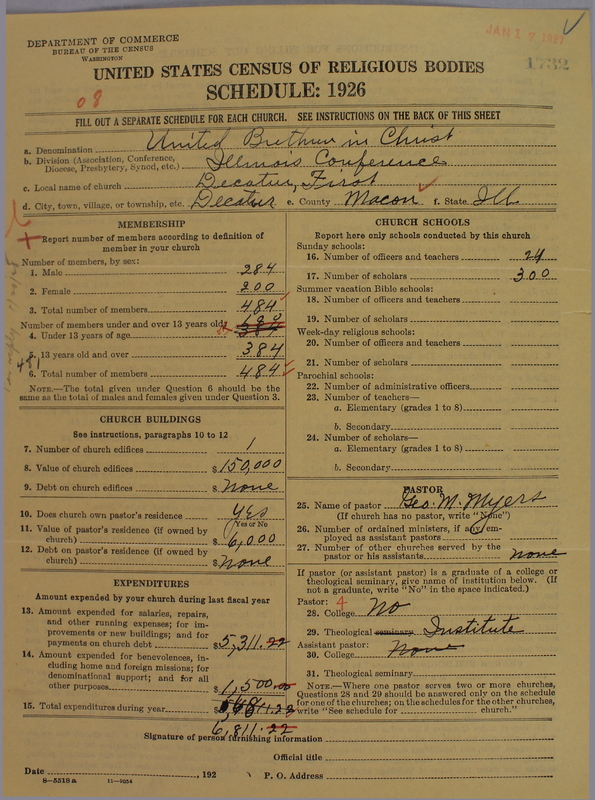 JAN 17 1927
1732
DEPARTMENT OF COMMERCE
BUREAU OF THE CENSUS
WASHINGTON
UNITED STATES CENSUS OF RELIGIOUS BODIES
SCHEDULE: 1926
08
FILL OUT A SEPARATE SCHEDULE FOR EACH CHURCH. SEE INSTRUCTIONS ON THE BACK OF THIS SHEET
a. Denomination United Brethren in Christ
b. Division (Association, Conference, Diocese, Presbytery, Synod, etc.) Illinois Conference
c. Local name of church Decatur, First
d. City, town, village, or township, etc. Decatur e. County Macon f. State Ill
MEMBERSHIP
Report number of members according to definition of
member in your church
Number of members, by sex:
1. Male 284
2. Female 200
3. Total number of members 484
Number of members under and over 13 years old:
4. Under 13 years of age 100
5. 13 years old and over 384
6. Total number of members 484
481
NOTE.—The total given under Question 6 should be the
same as the total of males and females given under Question 3.
CHURCH BUILDINGS
See instructions, paragraphs 10 to 12
7. Number of church edifices 1
8. Value of church edifices $ 150,000
9. Debt on church edifices $ None
10. Does church own pastor's residence Yes
(Yes or No)
11. Value of pastor's residence (if owned by
church) $ 6,000
12. Debt on pastor's residence (if owned by
church) $ None
EXPENDITURES
Amount expended by your church during last fiscal year
13. Amount expended for salaries, repairs,
and other running expenses; for im-
provements or new buildings; and for
payments on church debt $ 5,311.22
14. Amount expended for benevolences, in-
cluding home and foreign missions; for
denominational support; and for all
other purposes 1,500.00
15. Total expenditures during year $
6,811.22
CHURCH SCHOOLS
Report here only schools conducted by this church
Sunday schools:
16. Number of officers and teachers 24
17. Number of scholars 300
Summer vacation Bible schools:
18. Number of officers and teachers
19. Number of scholars
Week-day religious schools:
20. Number of officers and teachers
21. Number of scholars
Parochial schools:
22. Number of administrative officers
23. Number of teachers—
a. Elementary (grades 1 to 8)
b. Secondary
24. Number of scholars—
a. Elementary (grades 1 to 8)
b. Secondary
PASTOR
25. Name of pastor Geo. M. Myers
(If church has no pastor, write "None")
26. Number of ordained ministers, if any em-
ployed as assistant pastors
27. Number of other churches served by the
pastor or his assistants none
If pastor (or assistant pastor) is a graduate of a college or
theological seminary, give name of institution below. (If
not a graduate, write "No" in the space indicated.)
Pastor: 4
28. College No
29. Theological seminary Institute
Assistant pastor:
30. College None
31. Theological seminary
NOTE.—Where one pastor serves two or more churches,
Questions 28 and 29 should be answered only on the schedule
for one of the churches; on the schedules for the other churches,
write "See schedule for church."
Signature of person furnishing information
Official title
Date , 192 P. O. Address
8—5518a 11—9054